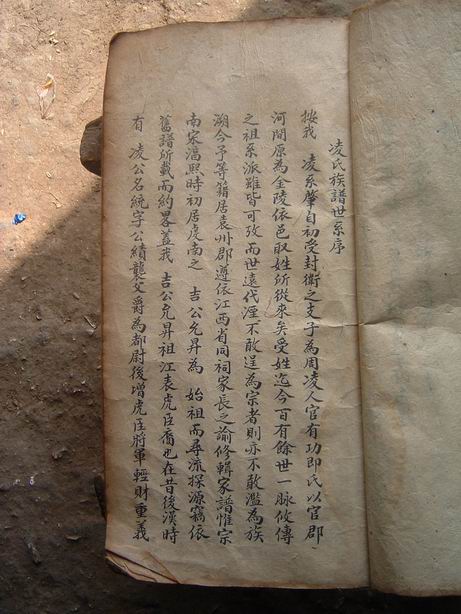 凌氏族譜世系序
按我 凌系肇自初受封衛之支子為周凌人官有功即氏以官郡
河間原為金陵依邑取姓所從來矣受姓迄今百有餘世一脉攸傳
之祖系派雖皆可攷而世遠代湮不敢逞為宗者則亦不敢濫為族
溯今予等籍居袁州郡遵依江西省同祠家長之諭修輯家譜惟宗
南宋淳熙時初居虔南之 吉公允昇為 始祖而尋流探源竊依
舊譜所載而約畧蓋我 吉公允昇祖江表虎臣裔也在昔後漢時
有 凌公名統字公績襲父爵為都尉後增虎臣將軍輕財重義